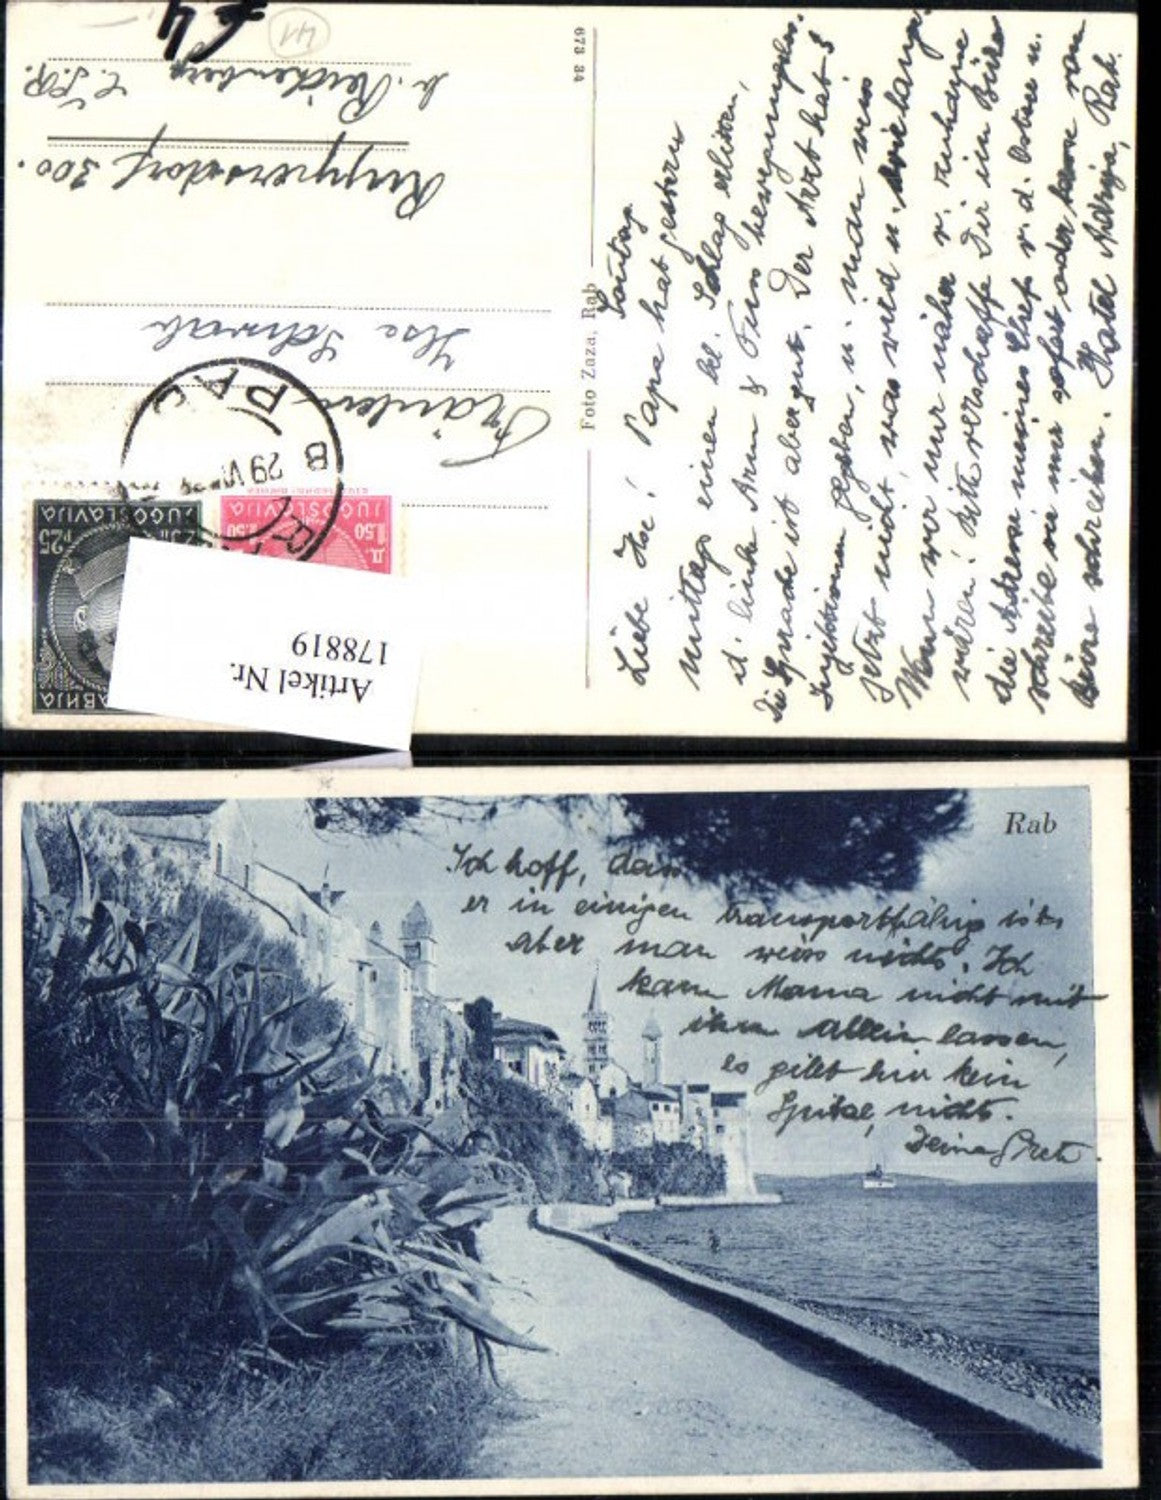 Sonntag
Liebe Ilse! Papa hat gestern
mittags einen bel. Schlag erlitten,
d. linke Arm & Fuss bewegungslos.
Die Sprache ist aber gut. Der Arzt hat 3
Injektionen gegeben, u. man weis
jetzt nicht, was wird u. wie lange.
Wenn wir nur näher v. zuhause
wären! Bitte verschaffe Dir im Büro
die Adresse meines Chefs v. d. Ostsee u.
schreibe sie mir sofort oder
schreiben. Hotel Adrija, Rab.
Foto Zaza, Rab
673 34
41
Fräulein
Ilse Schwab
Ruppersdorf 300.
b. Reichenberg
Č.S.R.
PAG
29 VI
JUGOSLAVIJA
1.50
JUGOSLAVIJA
25
Artikel Nr.
178819
Rab
Ich hoff, dass
er in einigen transportfähig ist,
aber man weiss nichts. Ich
kann Mama nicht mit
ihm allein lassen,
es gibt hier kein
Spital, nichts.
Deine Grete.